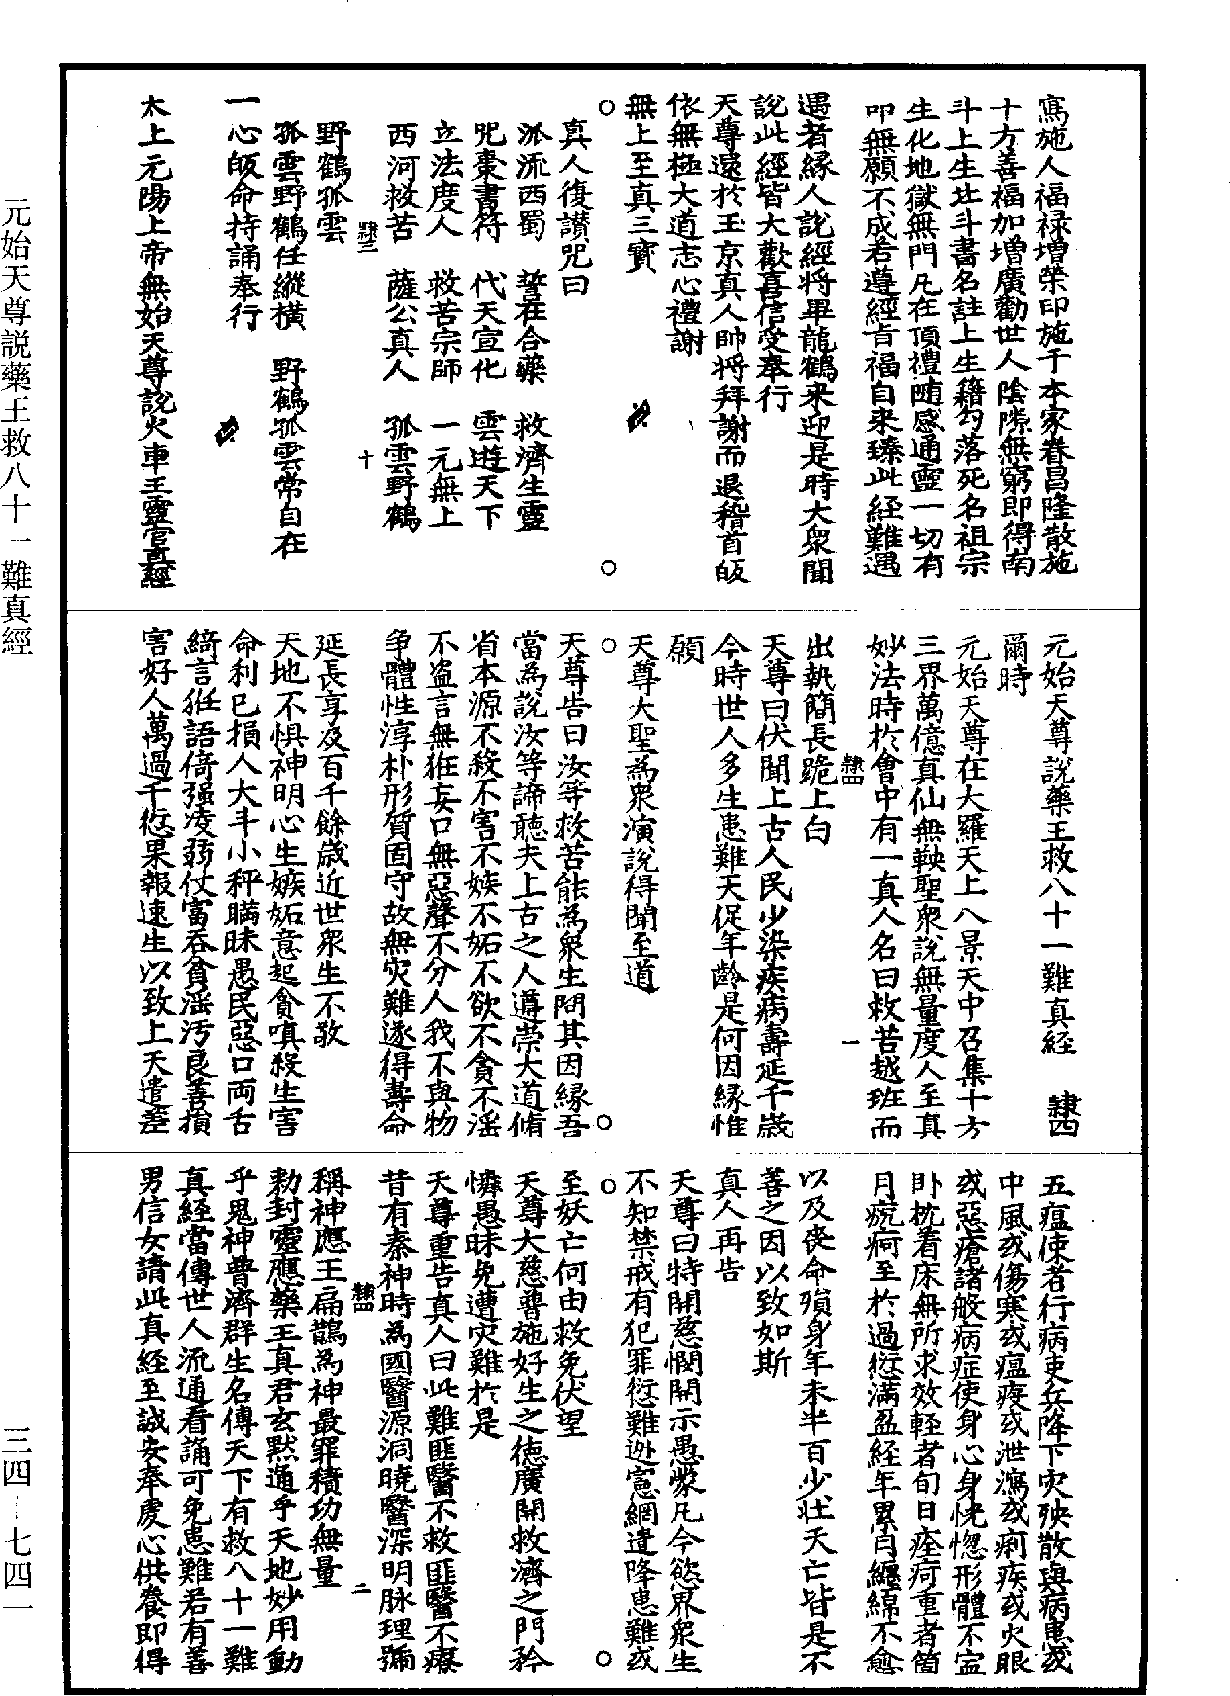 寫施人福祿增榮印施千本家眷昌隆散施
十方善福加增廣勸世人陰隲無窮即得南
斗上生北斗書名註上生籍勾落死名祖宗
生化地獄無門凡在頂禮随感通靈一切有
叩無願不成若尊經旨福自来臻此經難遇
遇者縁人說經將畢龍鶴来迎是時大衆聞
說此經皆大歡喜信受奉行
天尊還於玉京真人帥將拜謝而退稽首皈
依無極大道志心禮謝
無上至真三寳
○ ○
真人復讃咒曰
派流西蜀 誓在合藥 救濟生靈
咒棗書符 代天宣化 雲遊天下
立法度人 救苦宗師 一元無上
西河救苦 薩公真人 孤雲野鶴
隸三 十
野鶴孤雲
孤雲野鶴任縱横 野鶴孤雲常自在
一心皈命持誦奉行
太上元陽上帝無始天尊說火車王靈官真經
元始天尊說藥王救八十一難真経 隸四
爾時
元始天尊在大羅天上八景天中召集十方
三界萬億真仙無鞅聖衆說無量度人至真
妙法時於會中有一真人名曰救苦越班而
隸四 一
出執簡長跪上白
天尊曰伏聞上古人民少染疾病壽延千歲
今時世人多生患難夭促年齡是何因縁惟
願
天尊大聖為衆演說得聞至道
○ ○
天尊告曰汝等救苦能為衆生問其因縁吾
當為說汝等諦聽夫上古之人遵崇大道脩
省本源不殺不害不嫉不妬不欲不貪不滛
不盗言無狂妄口無惡聲不分人我不與物
争體性淳朴形質固守故無灾難遂得壽命
延長享及百千餘歲近世衆生不敬
天地不惧神明心生嫉妬意起貪嗔殺生害
命利已損人大斗小秤瞞昧愚民惡口両舌
綺言狂語倚强凌弱仗富吞貧滛汚良善損
害好人萬過千愆果報速生以致上天遣差
五瘟使者行病吏兵降下灾殃散與病患或
中風或傷寒或瘟疫或泄瀉或痢疾或火眼
或惡瘡諸般病症使身心身恍惚形體不寧
卧枕着床無所求效輕者旬日痊疴重者箇
月疣疴至於過愆满盈経年累月纏綿不愈
以及丧命殞身年未半百少壮夭亡皆是不
善之因以致如斯
真人再告
天尊曰特開慈憫開示愚蒙凡今慾界衆生
不知禁戒有犯罪愆難逃憲網遣降患難或
○ ○
至妖亡何由救免伏望
天尊大慈普施好生之德廣開救濟之門矜
憐愚昧免遭灾難於是
天尊重告真人曰此難匪醫不救匪醫不療
昔有秦神時為國醫源洞曉醫深明脉理號
隸四 二
稱神應王扁鵲為神最罪積功無量
勑封靈應藥王真君玄黙通乎天地妙用動
乎鬼神普濟群生名傳天下有救八十一難
真経當傳世人流通看誦可免患難若有善
男信女請此真経至誠安奉虔心供養即得
元始天尊説藥王救八十一難真經
三四－七四一